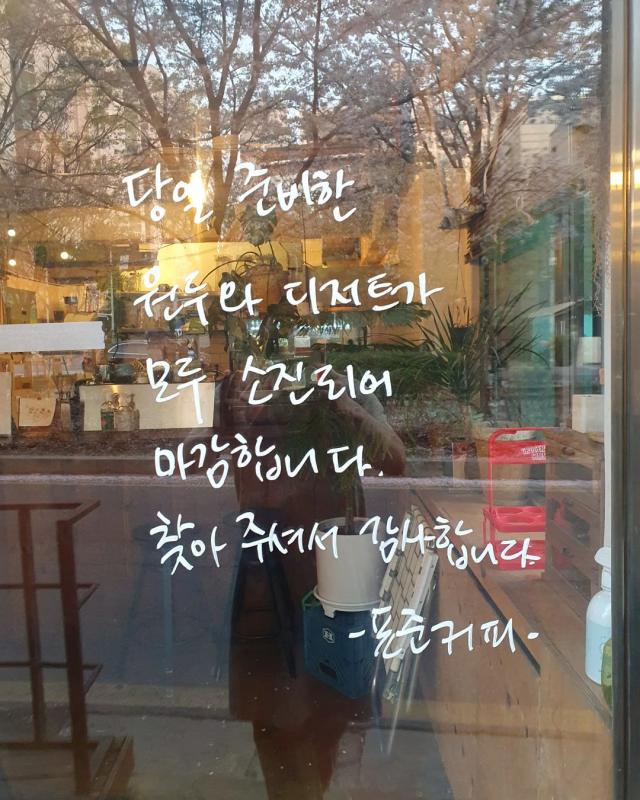 당일 준비한
원두와 디저트가
모두 소진되어
마감합니다.
찾아 주셔서 감사합니다.
-표준커피-